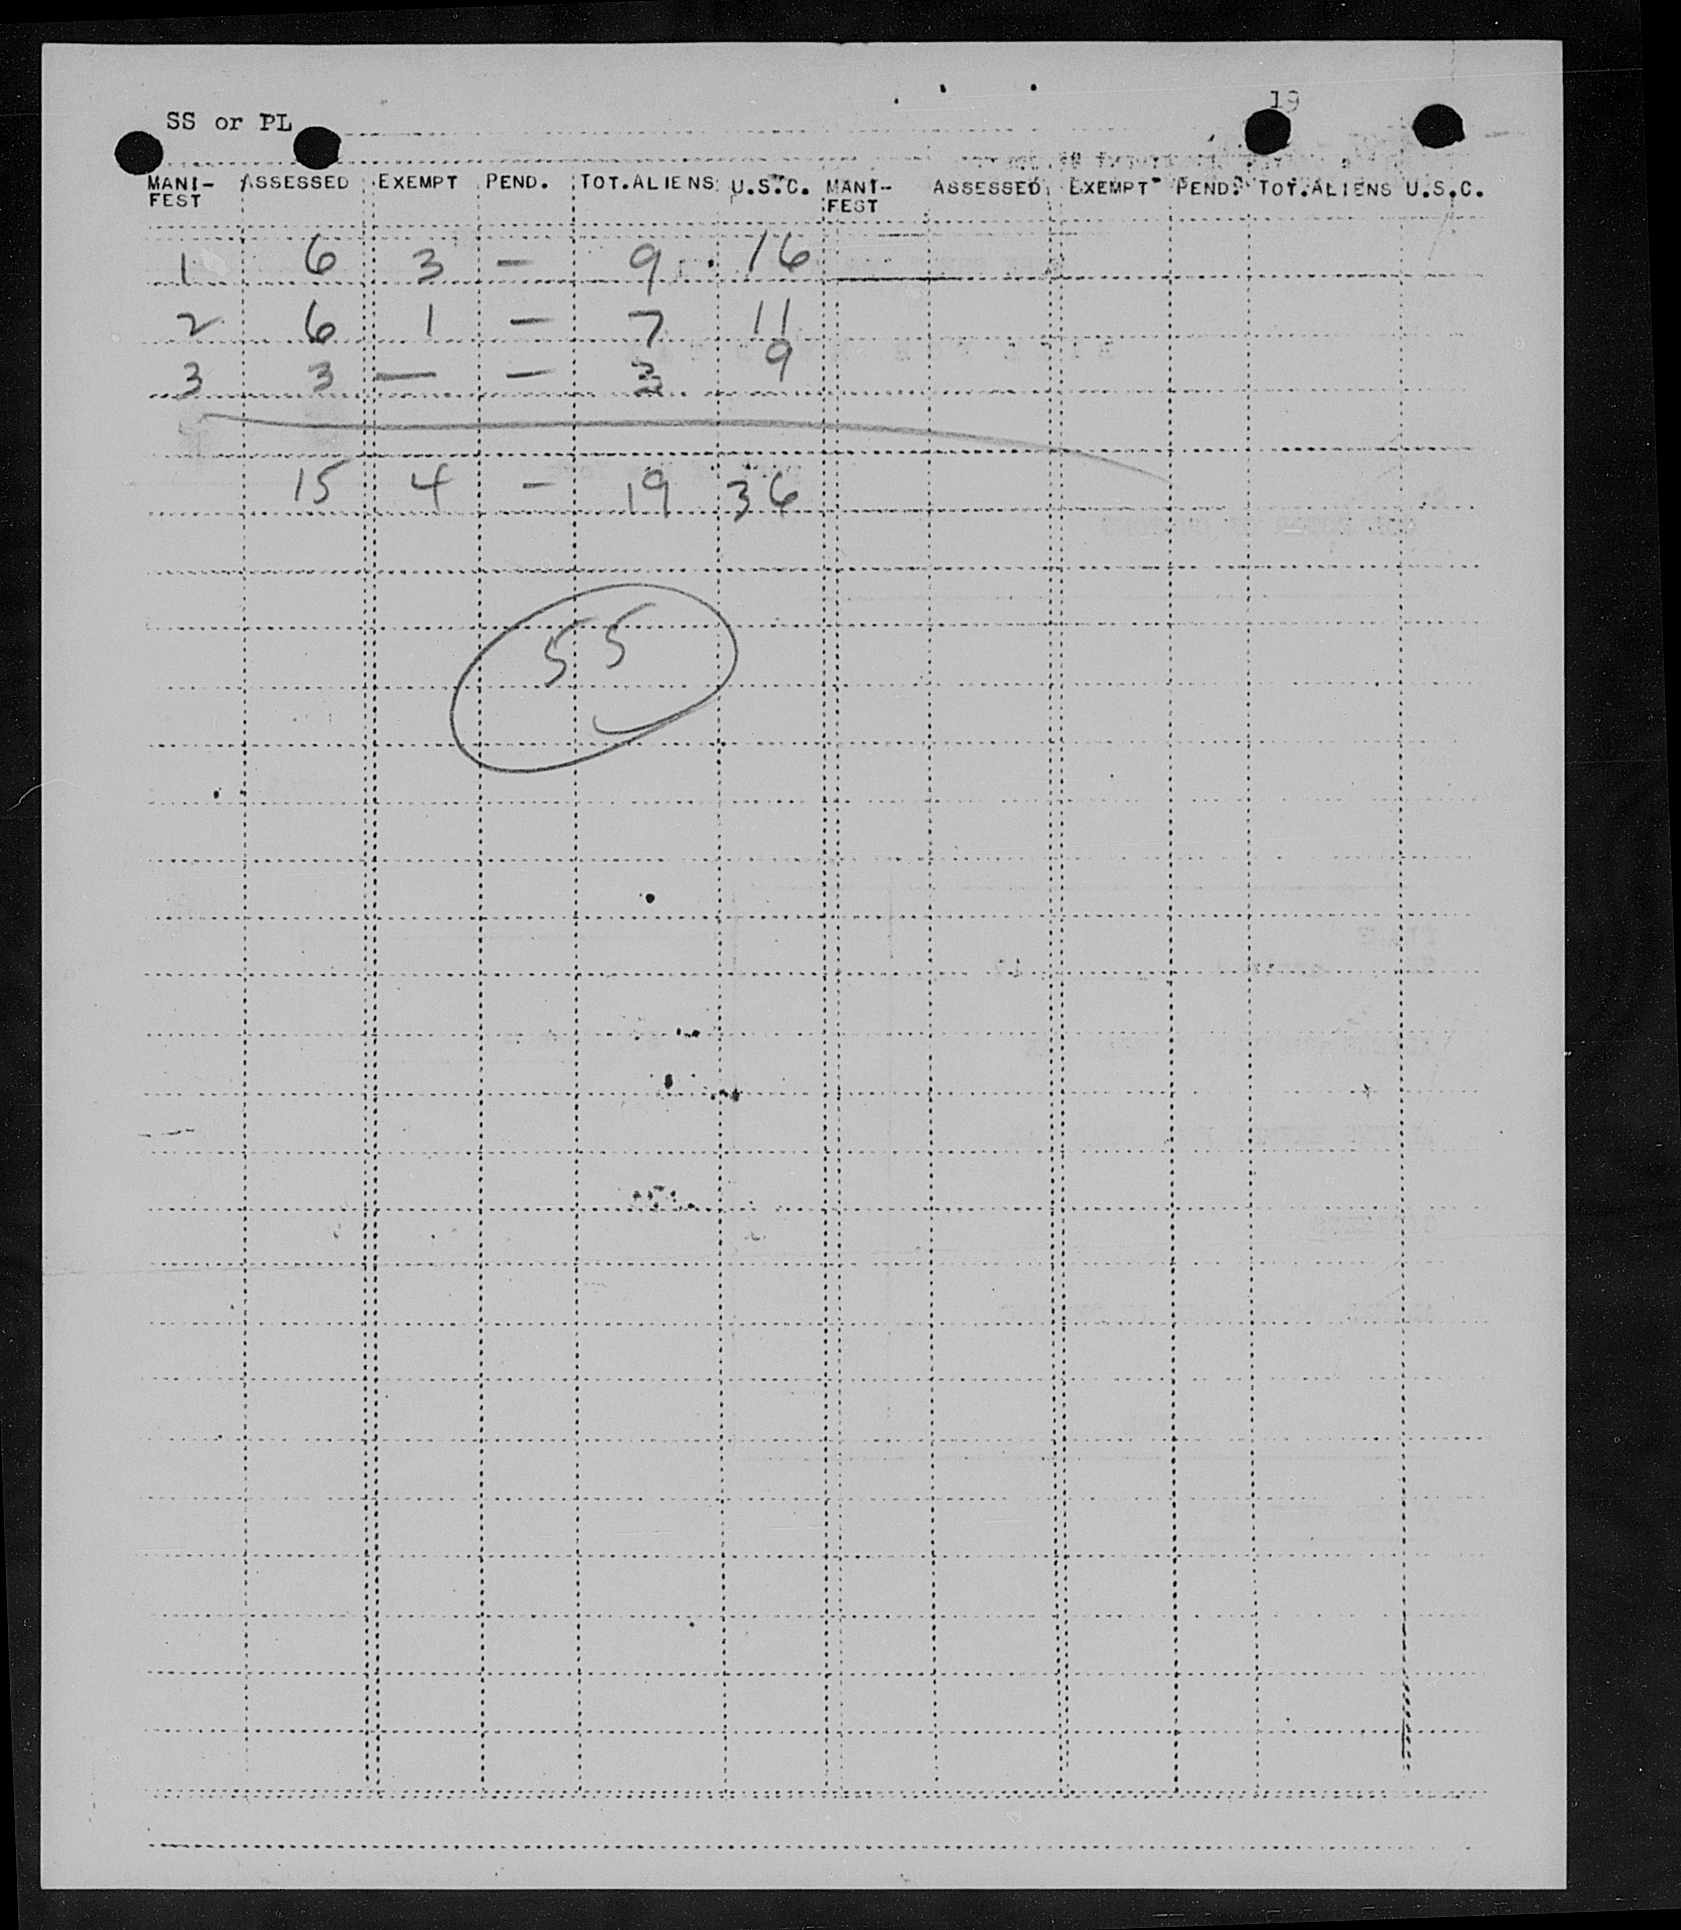 19
SS or PL
MANI- ASSESSED EXEMPT PEND. TOT.ALIENS U.S.C. MANI- ASSESSED EXEMPT PEND. TOT.ALIENS U.S.C.
FEST FEST
1 6 3 - 9 16
2 6 1 - 7 11
3 3 - - 3 9
15 4 - 19 36
55